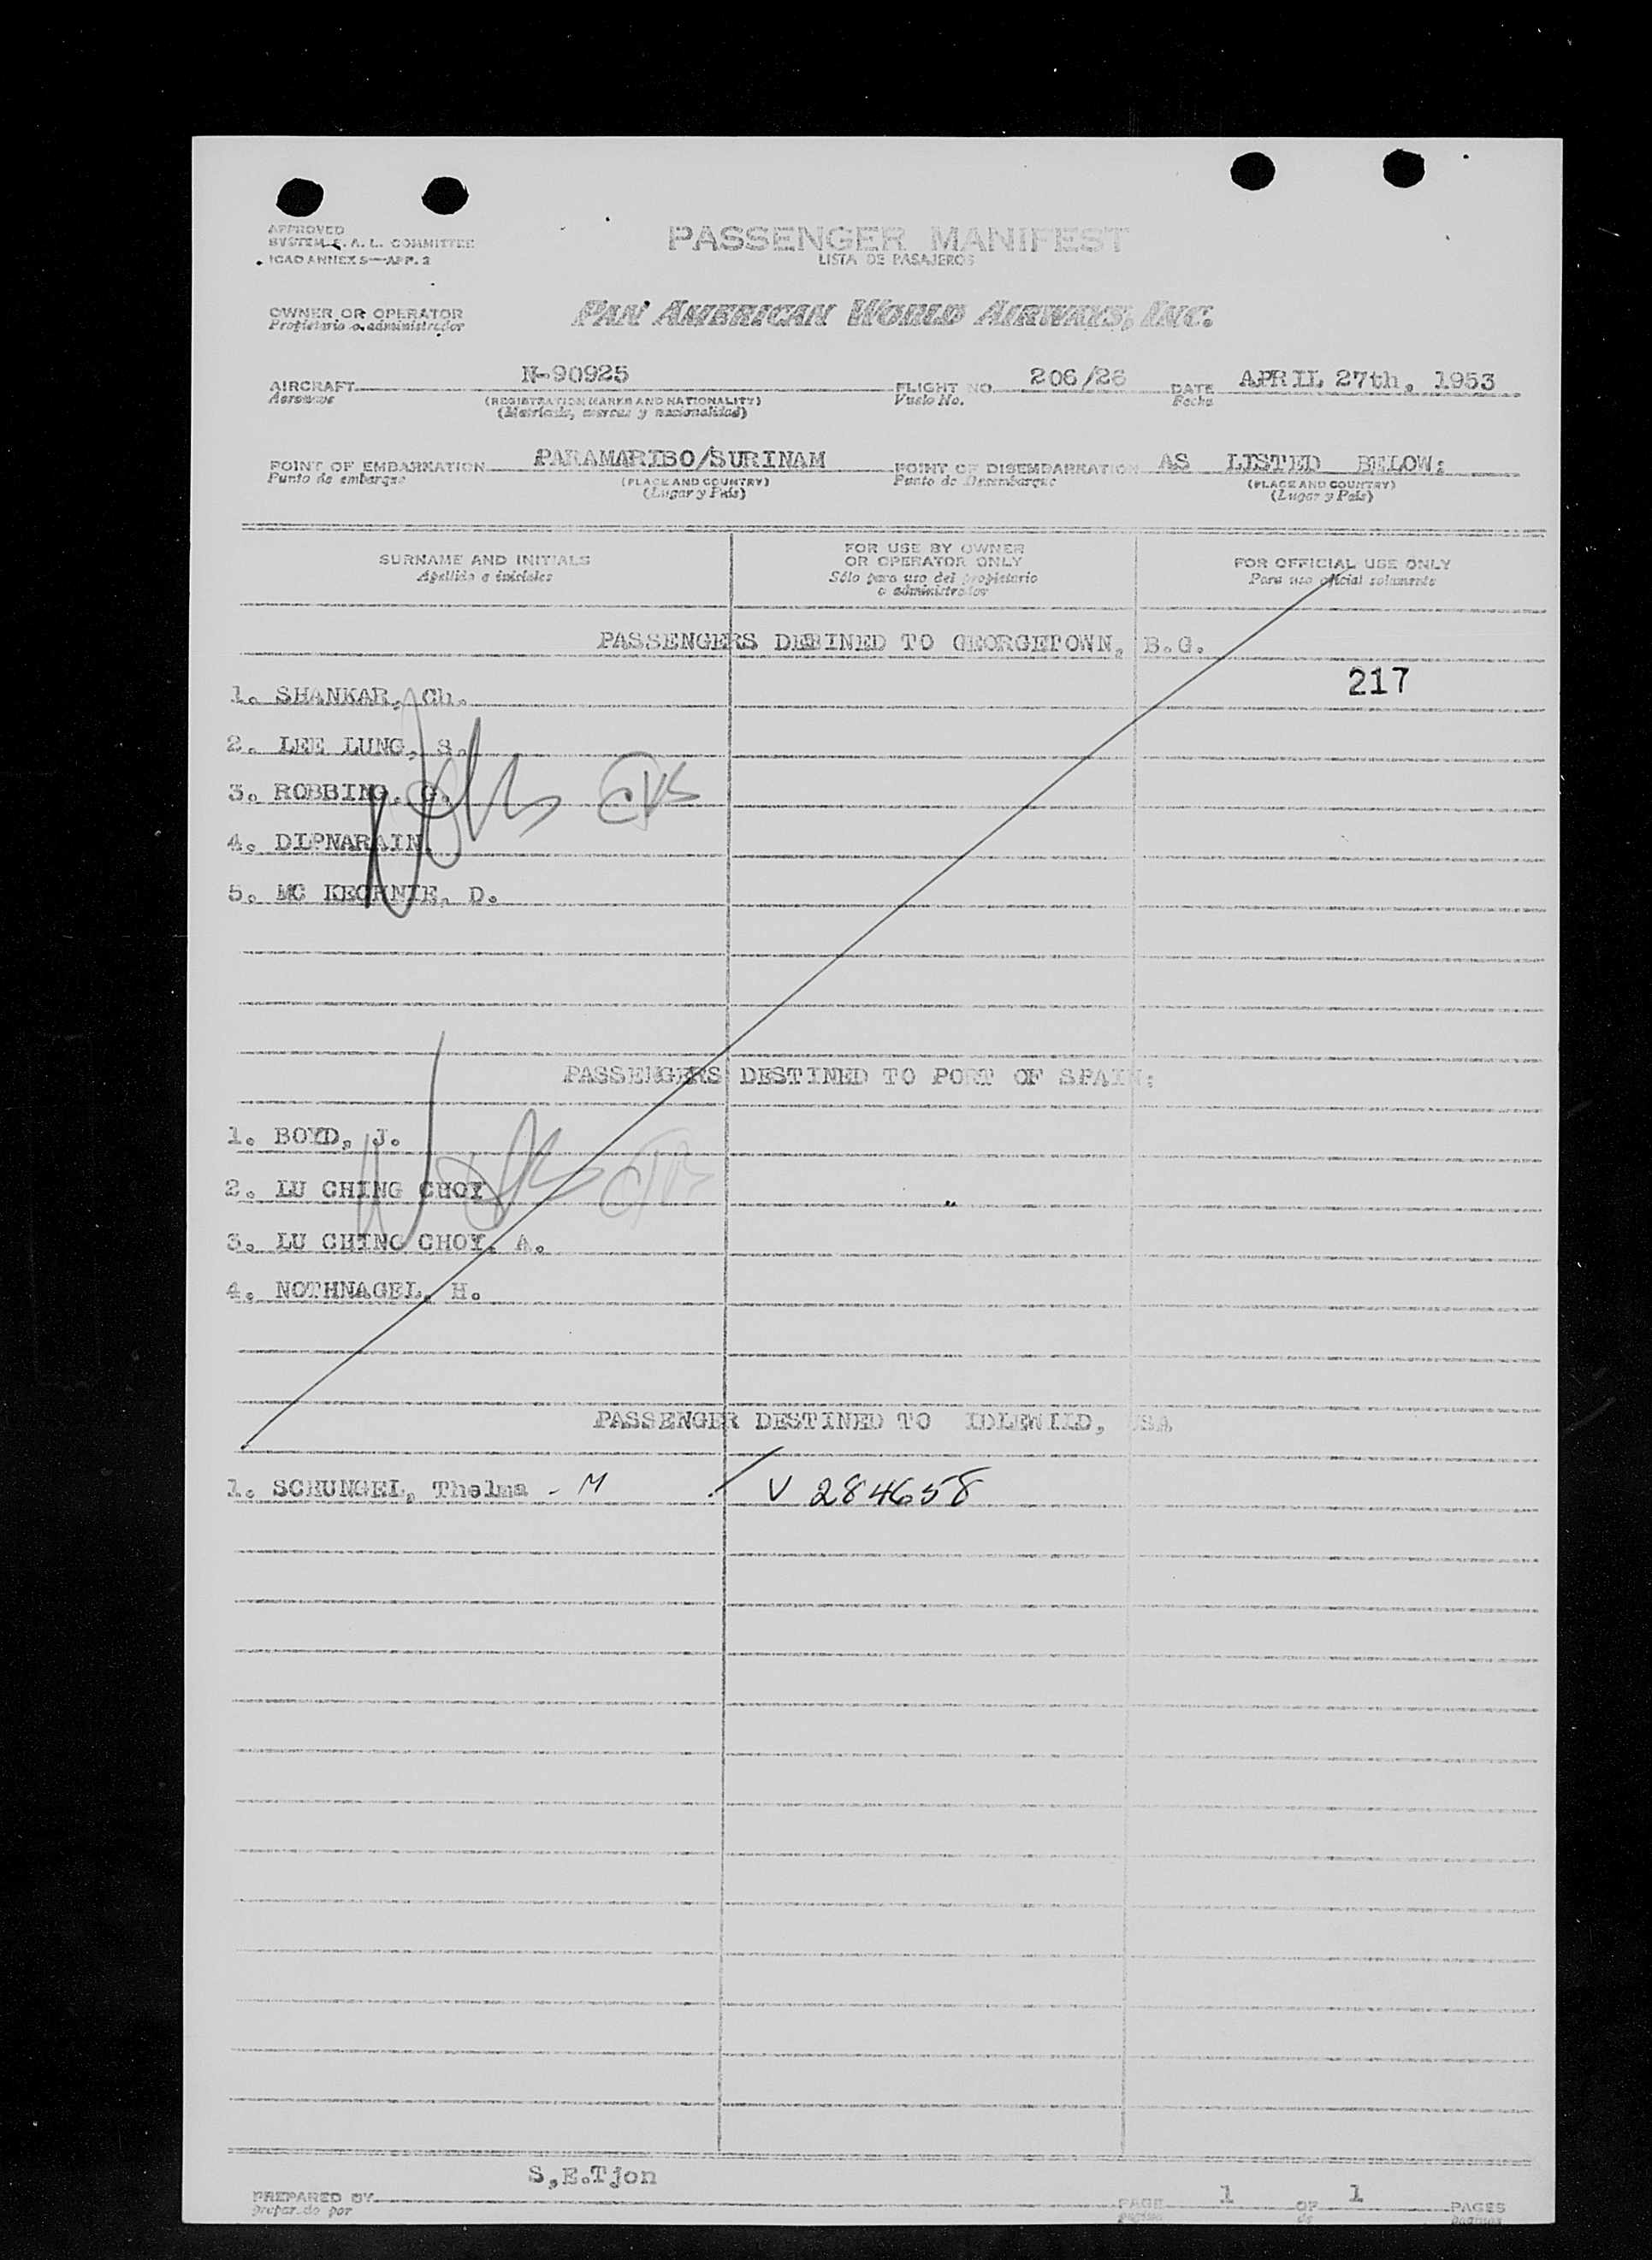 APPROVED
SYSTEM F. A. L. COMMITTEE
ICAO ANNEX 9—APP. 2
PASSENGER MANIFEST
LISTA DE PASAJEROS
OWNER OR OPERATOR
Propietario o administrador
PAN AMERICAN WORLD AIRWAYS, INC.
AIRCRAFT N-90925 FLIGHT NO. 206/26 DATE APRIL 27th, 1953
Aeronave (REGISTRATION MARKS AND NATIONALITY) Vuelo No. Fecha
(Matrícula, marcas y nacionalidad)
POINT OF EMBARKATION PARAMARIBO/SURINAM POINT OF DISEMBARKATION AS LISTED BELOW:
Punto de embarque (PLACE AND COUNTRY) Punto de Desembarque (PLACE AND COUNTRY)
(Lugar y País) (Lugar y País)
SURNAME AND INITIALS
Apellido e iniciales
FOR USE BY OWNER
OR OPERATOR ONLY
Sólo para uso del propietario
o administrador
FOR OFFICIAL USE ONLY
Para uso oficial solamente
PASSENGERS DEBINED TO GEORGETOWN, B.G.
217
1. SHANKAR, Ch.
2. LEE LUNG, S.
3. ROBBING, G.
4. DIPNARAIN.
5. MC KECHNIE, D.
PASSENGERS DESTINED TO PORT OF SPAIN:
1. BOYD, J.
2. LU CHING CHOY
3. LU CHING CHOY, A.
4. NOTHNAGEL, H.
PASSENGER DESTINED TO IDLEWILD, USA
1. SCHUNGEL, Thelma - M V 284658
S,E.Tjon
PREPARED BY PAGE 1 OF 1 PAGES
preparado por página de páginas